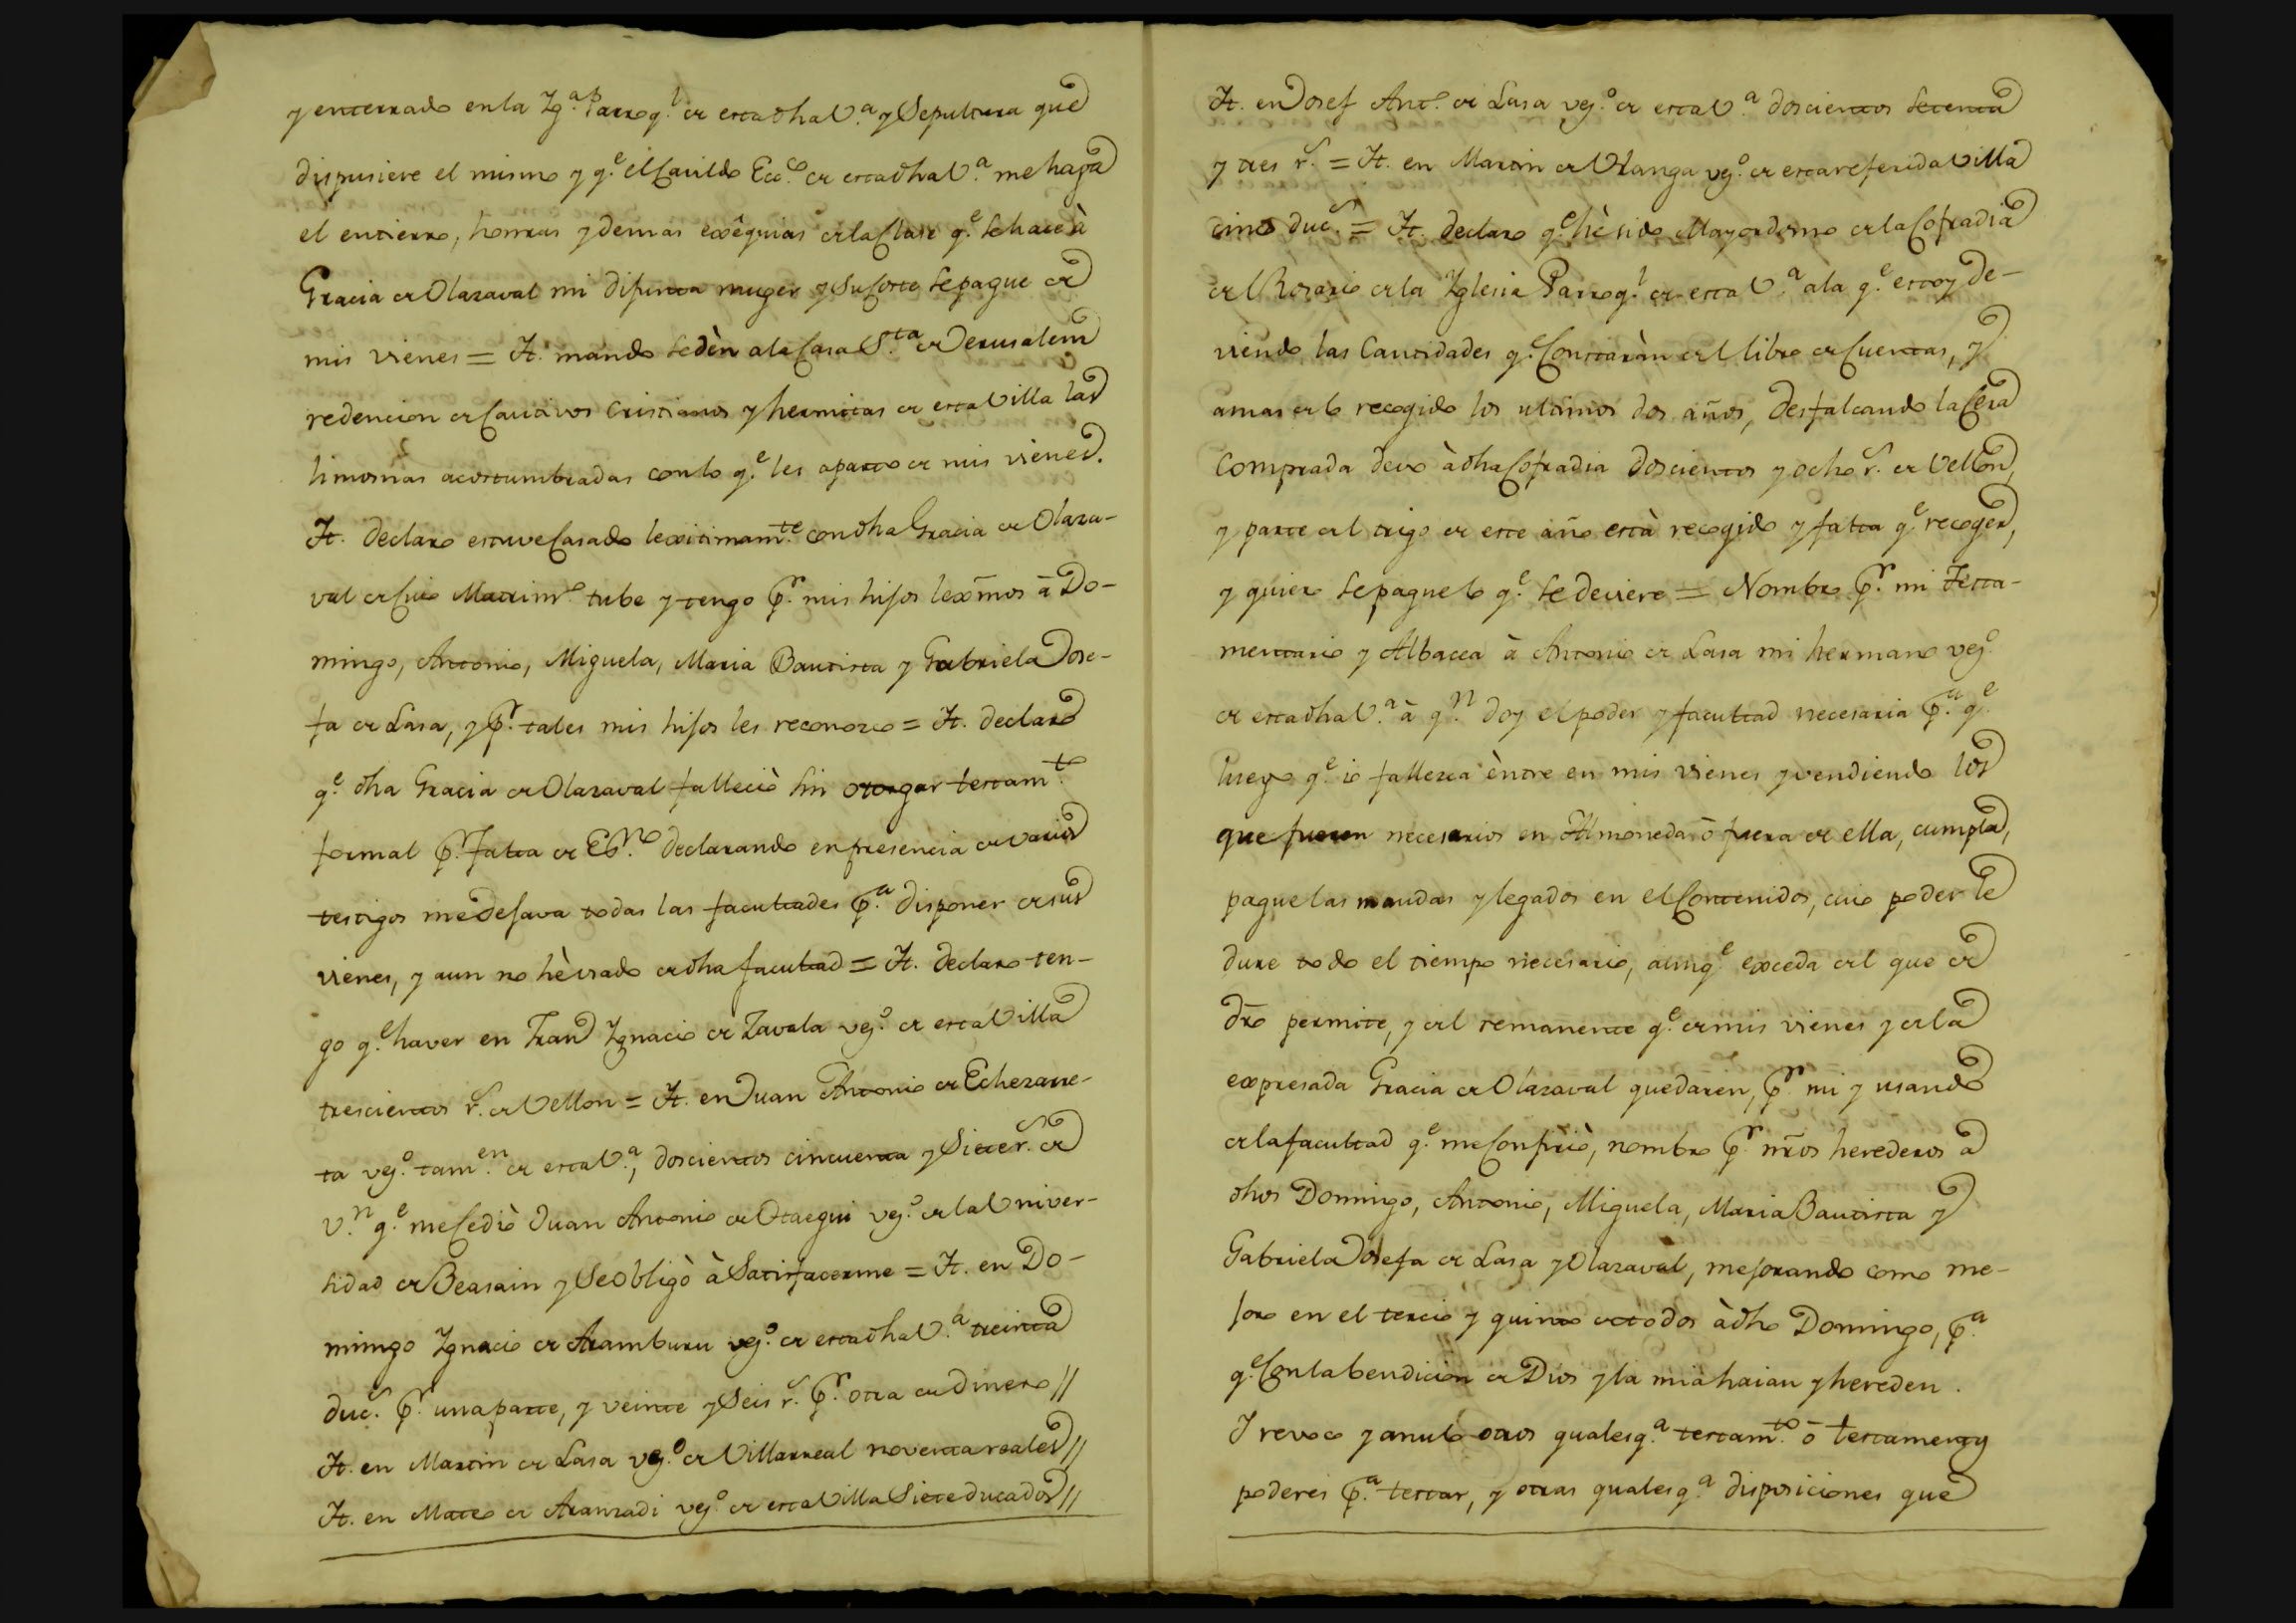 y enterrado en la Yg.ª Parroq.l de esta dha V.ª y Sepultura que
dispusiere el mismo y q.e el Cavildo Ecc.co de esta dha V.ª me haga
el entierro, honrras y demas exêquias de la Clase q.e se hace à
Gracia de Olazaval mi difunta muger y su Coste se pague de
mis vienes = It. mando se dèn a la Casa S.ta de Jerusalem
redencion de Cautivos Cristianos y hermitas de esta Villa las
limosnas acostumbradas con lo q.e les aparto de mis vienes.
It. declaro estuve Casado lexitimam.te con dha Gracia de Olaza-
val de Cuio Matrim.o tube y tengo p.r mis hijos lexmos ā Do-
mingo, Antonio, Miguela, Maria Bautista y Gabriela Jose-
fa de Lasa, y p.r tales mis hijos les reconozco = It. declaro
q.e dha Gracia de Olazaval falleciò sin otorgar testam.to
formal p.r falta de Es.no declarando en presencia de varios
testigos me dejava todas las facultades p.ª disponer de sus
vienes, y aun no hè usado de dha facultad = It. declaro ten-
go q.e haver en Fran Ygnacio de Zavala veg.o de esta Villa
trescientos r.s de Vellon = It. en Juan Antonio de Echezarre-
ta veg.o tam.en de esta V.ª, doscientos cincuenta y Siete r.s de
V.n q.e me Cediò Juan Antonio de Otaegui veg.o de la Univer-
sidad de Beasain y Se obligò à Satisfacerme = It. en Do-
mingo Ygnacio de Aramburu veg.o de esta dha V.ª treinta
duc.s p.r una parte, y veinte y Seis r.s p.r otra de dinero //
It. en Martin de Lasa veg.o de Villarreal noventa reales //
It. en Mateo de Aranzadi veg.o de esta Villa Siete ducados //
It. en Josef Ant.o de Lasa veg.o de esta V.ª doscientos setenta
y tres r.s = It. en Martin de Uranga veg.o de esta referida Villa
cinco duc.s = It. declaro q.e hè sido Mayordomo de la Cofradia
del Rosario de la Yglesia Parroq.l de esta V.ª a la q.e estoy de-
viendo las Cantidades q.e Constaràn del libro de Cuentas, y
a mas de lo recogido los ultimos dos años, desfalcando la Cera
Comprada devo à dha Cofradia doscientos y ocho r.s de Vellon,
y parte del trigo de este año està recogido y falta q.e recoger,
y quiero se pague lo q.e se deviere = Nombro p.r mi Testa-
mentario y Albacea à Antonio de Lasa mi hermano veg.o
de esta dha V.ª à q.n doy el poder y facultad necesaria p.ª q.e
luego q.e io fallezca èntre en mis vienes y vendiendo los
que fueren necesarios en Almoneda ō fuera de ella, cumpla,
pague las mandas y legados en el Contenidos, cuio poder le
dure todo el tiempo necesario, aunq.e exceda del que de
dro permite, y del remanente q.e de mis vienes y de la
expresada Gracia de Olazaval quedaren, p.r mi y usando
de la facultad q.e me Confiriò, nombro p.r nros herederos a
dhos Domingo, Antonio, Miguela, Maria Bautista y
Gabriela Josefa de Lasa y Olazaval, mejorando como me-
joro en el tercio y quinto de todos à dho Domingo, p.ª
q.e Con la bendicion de Dios y la mia haian y hereden.
I revoco y anulo otros qualesq.ª testam.to ō testamentos
poderes p.ª testar, y otras qualesq.ª disposiciones que